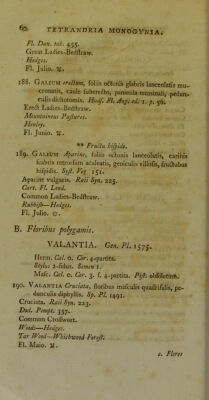 60 TETRANDRIA MONOGYNIA.
Fl. Dan. tab. 455.
Great Ladies-Bedſtraw.
Hedges.
Fl. Julio. ♃.
188. GALIUM erectum, foliis octonis glabris lanceolatis mu-
cronatis, caule ſuberecto, panicula terminali, pedun-
culis dichotomis. Hudſ. Fl. Angl. ed. 2. p.
Erect Ladies-Bedſtraw.
Mountainous Paſtures.
Henley.
Fl. Junio. ♃.
** Fructu hiſpido.
189. GALIUM Aparine, foliis octonis lanceolatis, carinis
ſcabris retrorſum aculeatis, geniculis villoſis, fructubus
hiſpidis. Syſt. Veg. 151.
Aparine vulgaris. Raii Syn. 225.
Curt. Fl. Lond.
Common Ladies-Bedſtraw.
Rubbiſh—Hedges.
Fl. Julio. ☉.
B. Floribus polygamis.
VALANTIA. Gen. Pl. 1575.
Herm. Cal. 0. Cor. 4-partita.
Stylus 2-fidus. Semen 1.
Maſc. Cal. 0. Cor. 3. ſ. 4-partita. Piſt. obſoletum.
190. VALANTIA Cruciata, floribus maſculis quadrifidis, pe-
dunculis diphyllis. Sp. Pl. 1491.
Cruciata. Raii Syn. 223.
Dod. Pempt. 357.
Common Croſſwort.
Woods—Hedges.
Tar Wood—Whichwood Foreſt.
Fl. Maio. ♃.
2. Flores